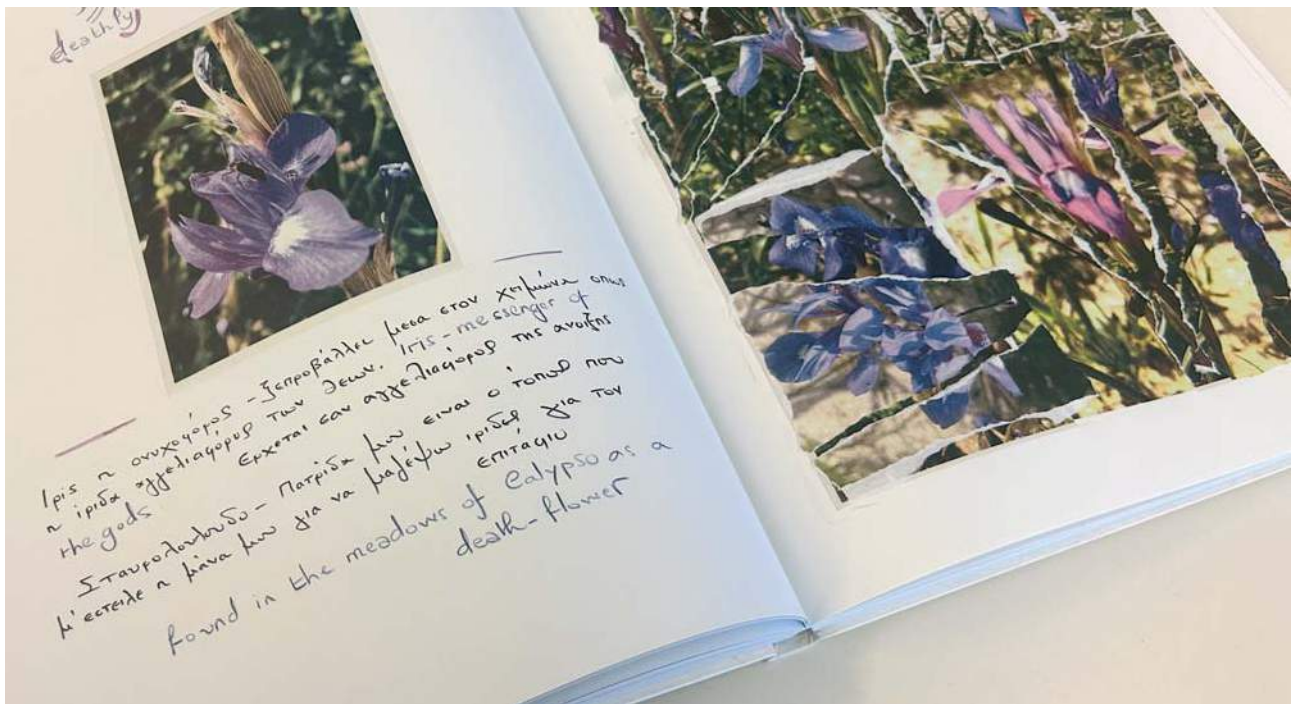 deathly
Ιρις η ονυχοφόρος - ξεπροβάλλει μεσα στον χειμώνα οπως
η ίριδα αγγελιαφόρος των θεων. Iris - messenger of
the gods ερχεται σαν αγγελιαφόρος της ανοιξης
Σταυρολουλουδο - Πατρίδα μου ειναι ο τόπος που
μ' εστειλε η μάνα μου για να μαζέψω ιριδες για τον
επιτάφιο
found in the meadows of Calypso as a
death-flower